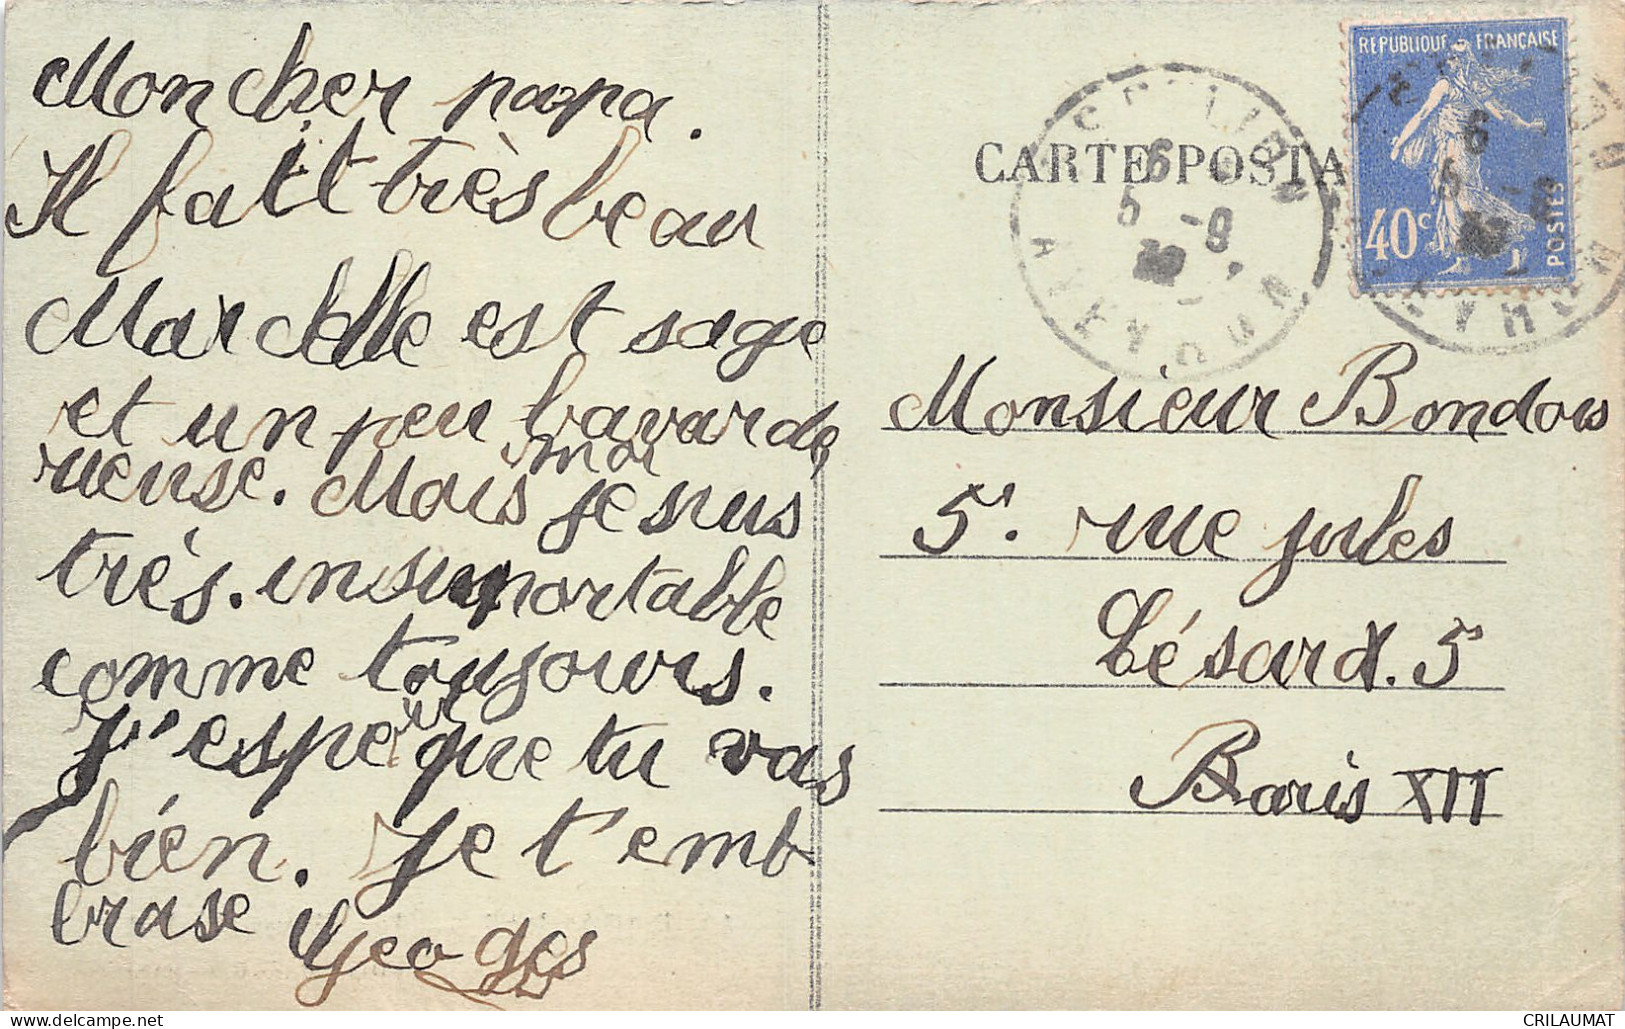 Mon cher papa.
Il fait très beau
Marcelle est sage
et un peu bavarde,
rieuse. Mais moi je suis
très. insupportable
comme toujours.
J'espère que tu vas
bien. Je t'emb
brase Georges
CARTE POSTA
REPUBLIQUE FRANÇAISE
40c
POSTES
6
5 -9
Monsieur Bondois
5. rue jules
Césard. 5
Paris XII
CRILAUMAT